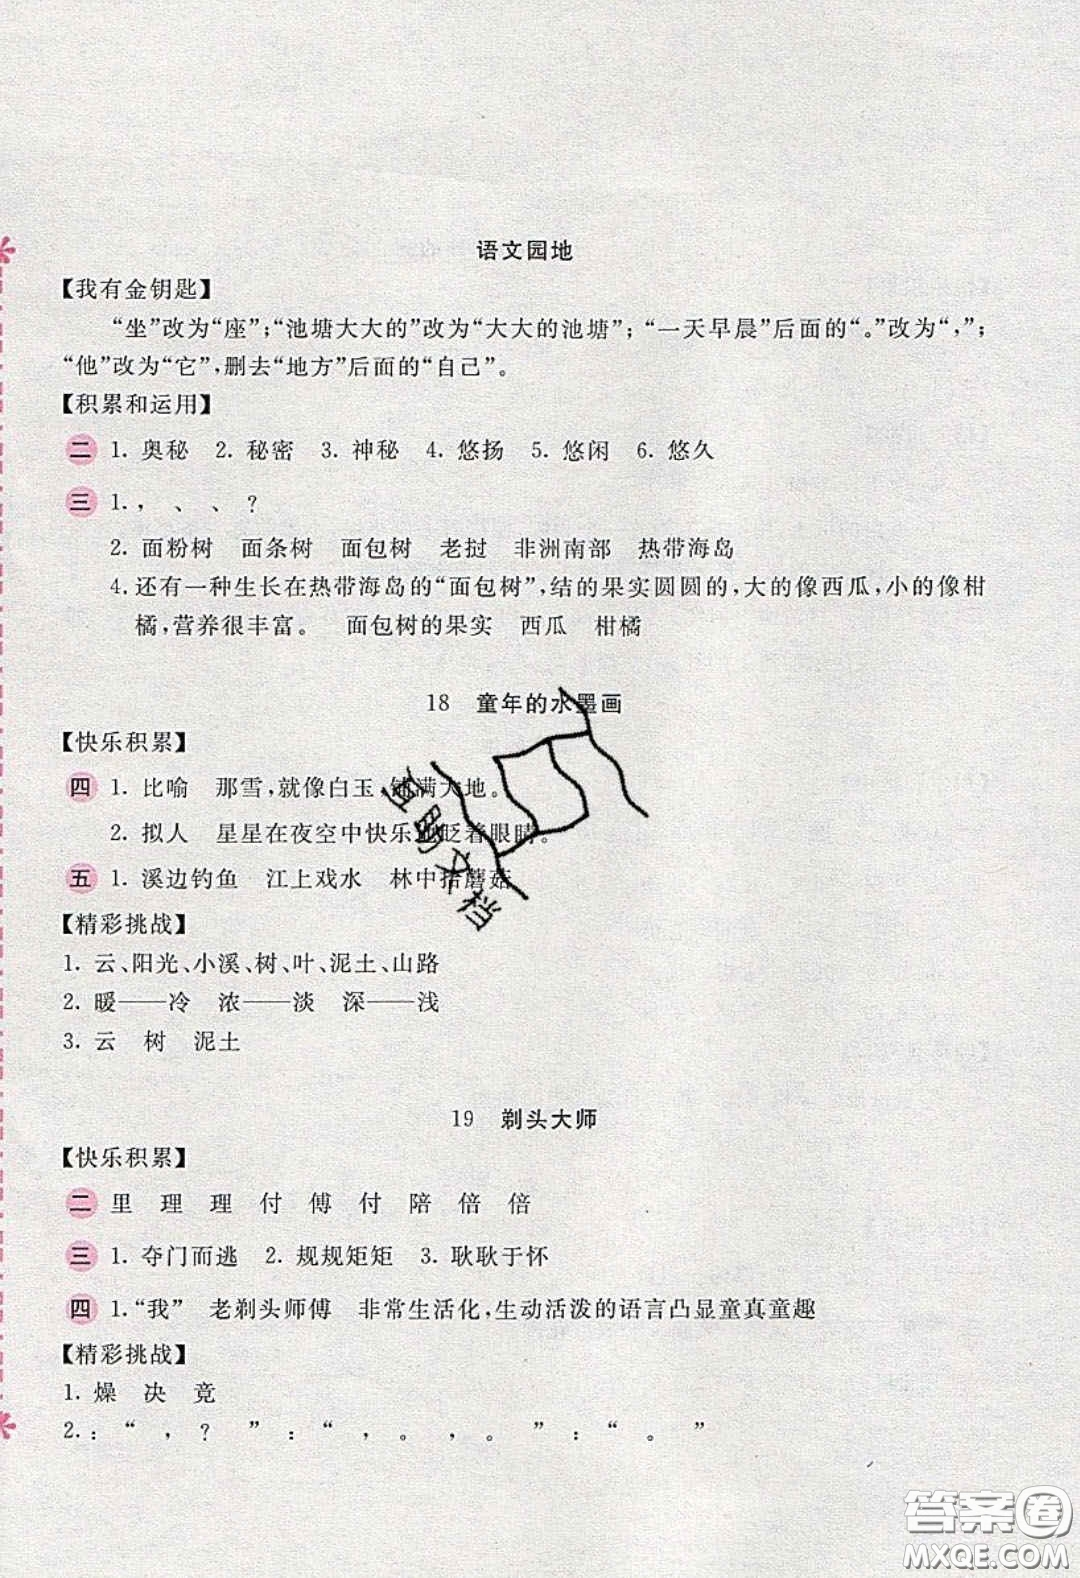 语文园地
【我有金钥匙】
“坐”改为“座”;“池塘大大的”改为“大大的池塘”;“一天早晨”后面的“。”改为“,”;
“他”改为“它”,删去“地方”后面的“自己”。
【积累和运用】
二 1. 奥秘 2. 秘密 3. 神秘 4. 悠扬 5. 悠闲 6. 悠久
三 1. , 、 、 ?
2. 面粉树 面条树 面包树 老挝 非洲南部 热带海岛
4. 还有一种生长在热带海岛的“面包树”,结的果实圆圆的,大的像西瓜,小的像柑
橘,营养很丰富。 面包树的果实 西瓜 柑橘
18 童年的水墨画
【快乐积累】
四 1. 比喻 那雪,就像白玉,铺满大地。
2. 拟人 星星在夜空中快乐地眨着眼睛。
五 1. 溪边钓鱼 江上戏水 林中拾蘑菇
【精彩挑战】
1. 云、阳光、小溪、树、叶、泥土、山路
2. 暖——冷 浓——淡 深——浅
3. 云 树 泥土
19 剃头大师
【快乐积累】
二 里 理 理 付 傅 付 陪 倍 倍
三 1. 夺门而逃 2. 规规矩矩 3. 耿耿于怀
四 1.“我” 老剃头师傅 非常生活化,生动活泼的语言凸显童真童趣
【精彩挑战】
1. 燥 决 竟
2. : “ , ? ” : “ , 。 , 。 ” : “ 。 ”
助文档
答案圈
MXQE.COM